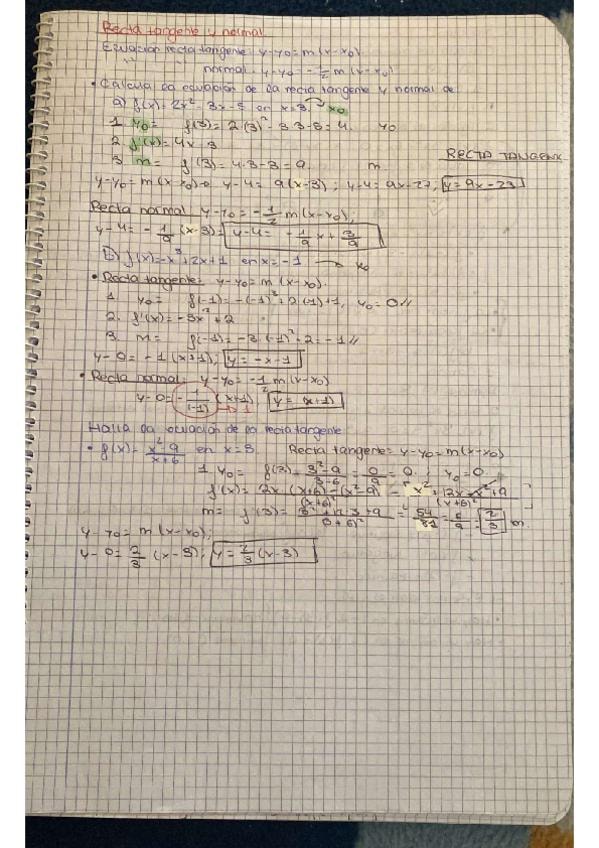 Recta tangente y normal
Ecuación recta tangente: y-y0 = m(x-x0).
" " normal: y-y0 = -1/2 m(x-x0)
• Calcula la ecuación de la recta tangente y normal de
a) f(x) = 2x²-3x-5 en x=3. → x0
1. y0 = f(3) = 2(3)²-3·3-5 = 4. y0
2. f'(x) = 4x-3
3. m = f'(3) = 4·3-3 = 9. m
RECTA TANGENTE
y-y0 = m(x-x0) → y-4 = 9(x-3); y-4 = 9x-27; y = 9x-23
Recta normal y-y0 = -1/2 m(x-x0);
y-4 = -1/9 (x-3); y-4 = -1/9 x + 3/9
b) f(x) = -x³+2x+1 en x=-1 → x0
• Recta tangente: y-y0 = m(x-x0).
1. y0 = f(-1) = -(-1)³+2(-1)+1, y0 = 0//
2. f'(x) = -3x²+2
3. m = f(-1) = -3·(-1)²+2 = -1//
y-0 = -1(x+1); y = -x-1
• Recta normal: y-y0 = -1/2 m(x-x0)
y-0 = -1/(-1) (x+1) → 1 y = (x+1)
Halla la ecuación de la recta tangente
• f(x) = x²-9/x+6 en x=3. Recta tangente = y-y0 = m(x-x0)
1. y0 = f(3) = 3²-9/3-6 = 0/9 = 0. ; y0 = 0
f'(x) = 2x·(x+6)-(x²-9)/(x+6)² = x²+12x-x²+9/(x+6)²
m = f'(3) = 3²+12·3+9/(3+6)² = 54/81 = 6/9 = 2/3 m.
y-y0 = m(x-x0);
y-0 = 2/3 (x-3); y = 2/3 (x-3)